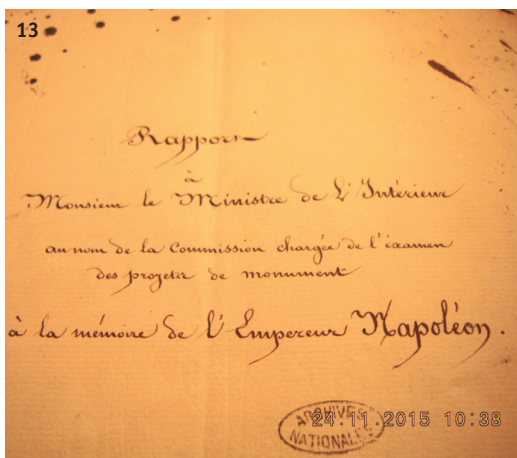 13
Rapport
à
Monsieur le Ministre de L'Intérieur
au nom de la Commission chargée de l'éxamen
des projets de monument
à la mémoire de l'Empereur Napoléon.
ARCHIVES
NATIONALES
24.11.2015 10:38